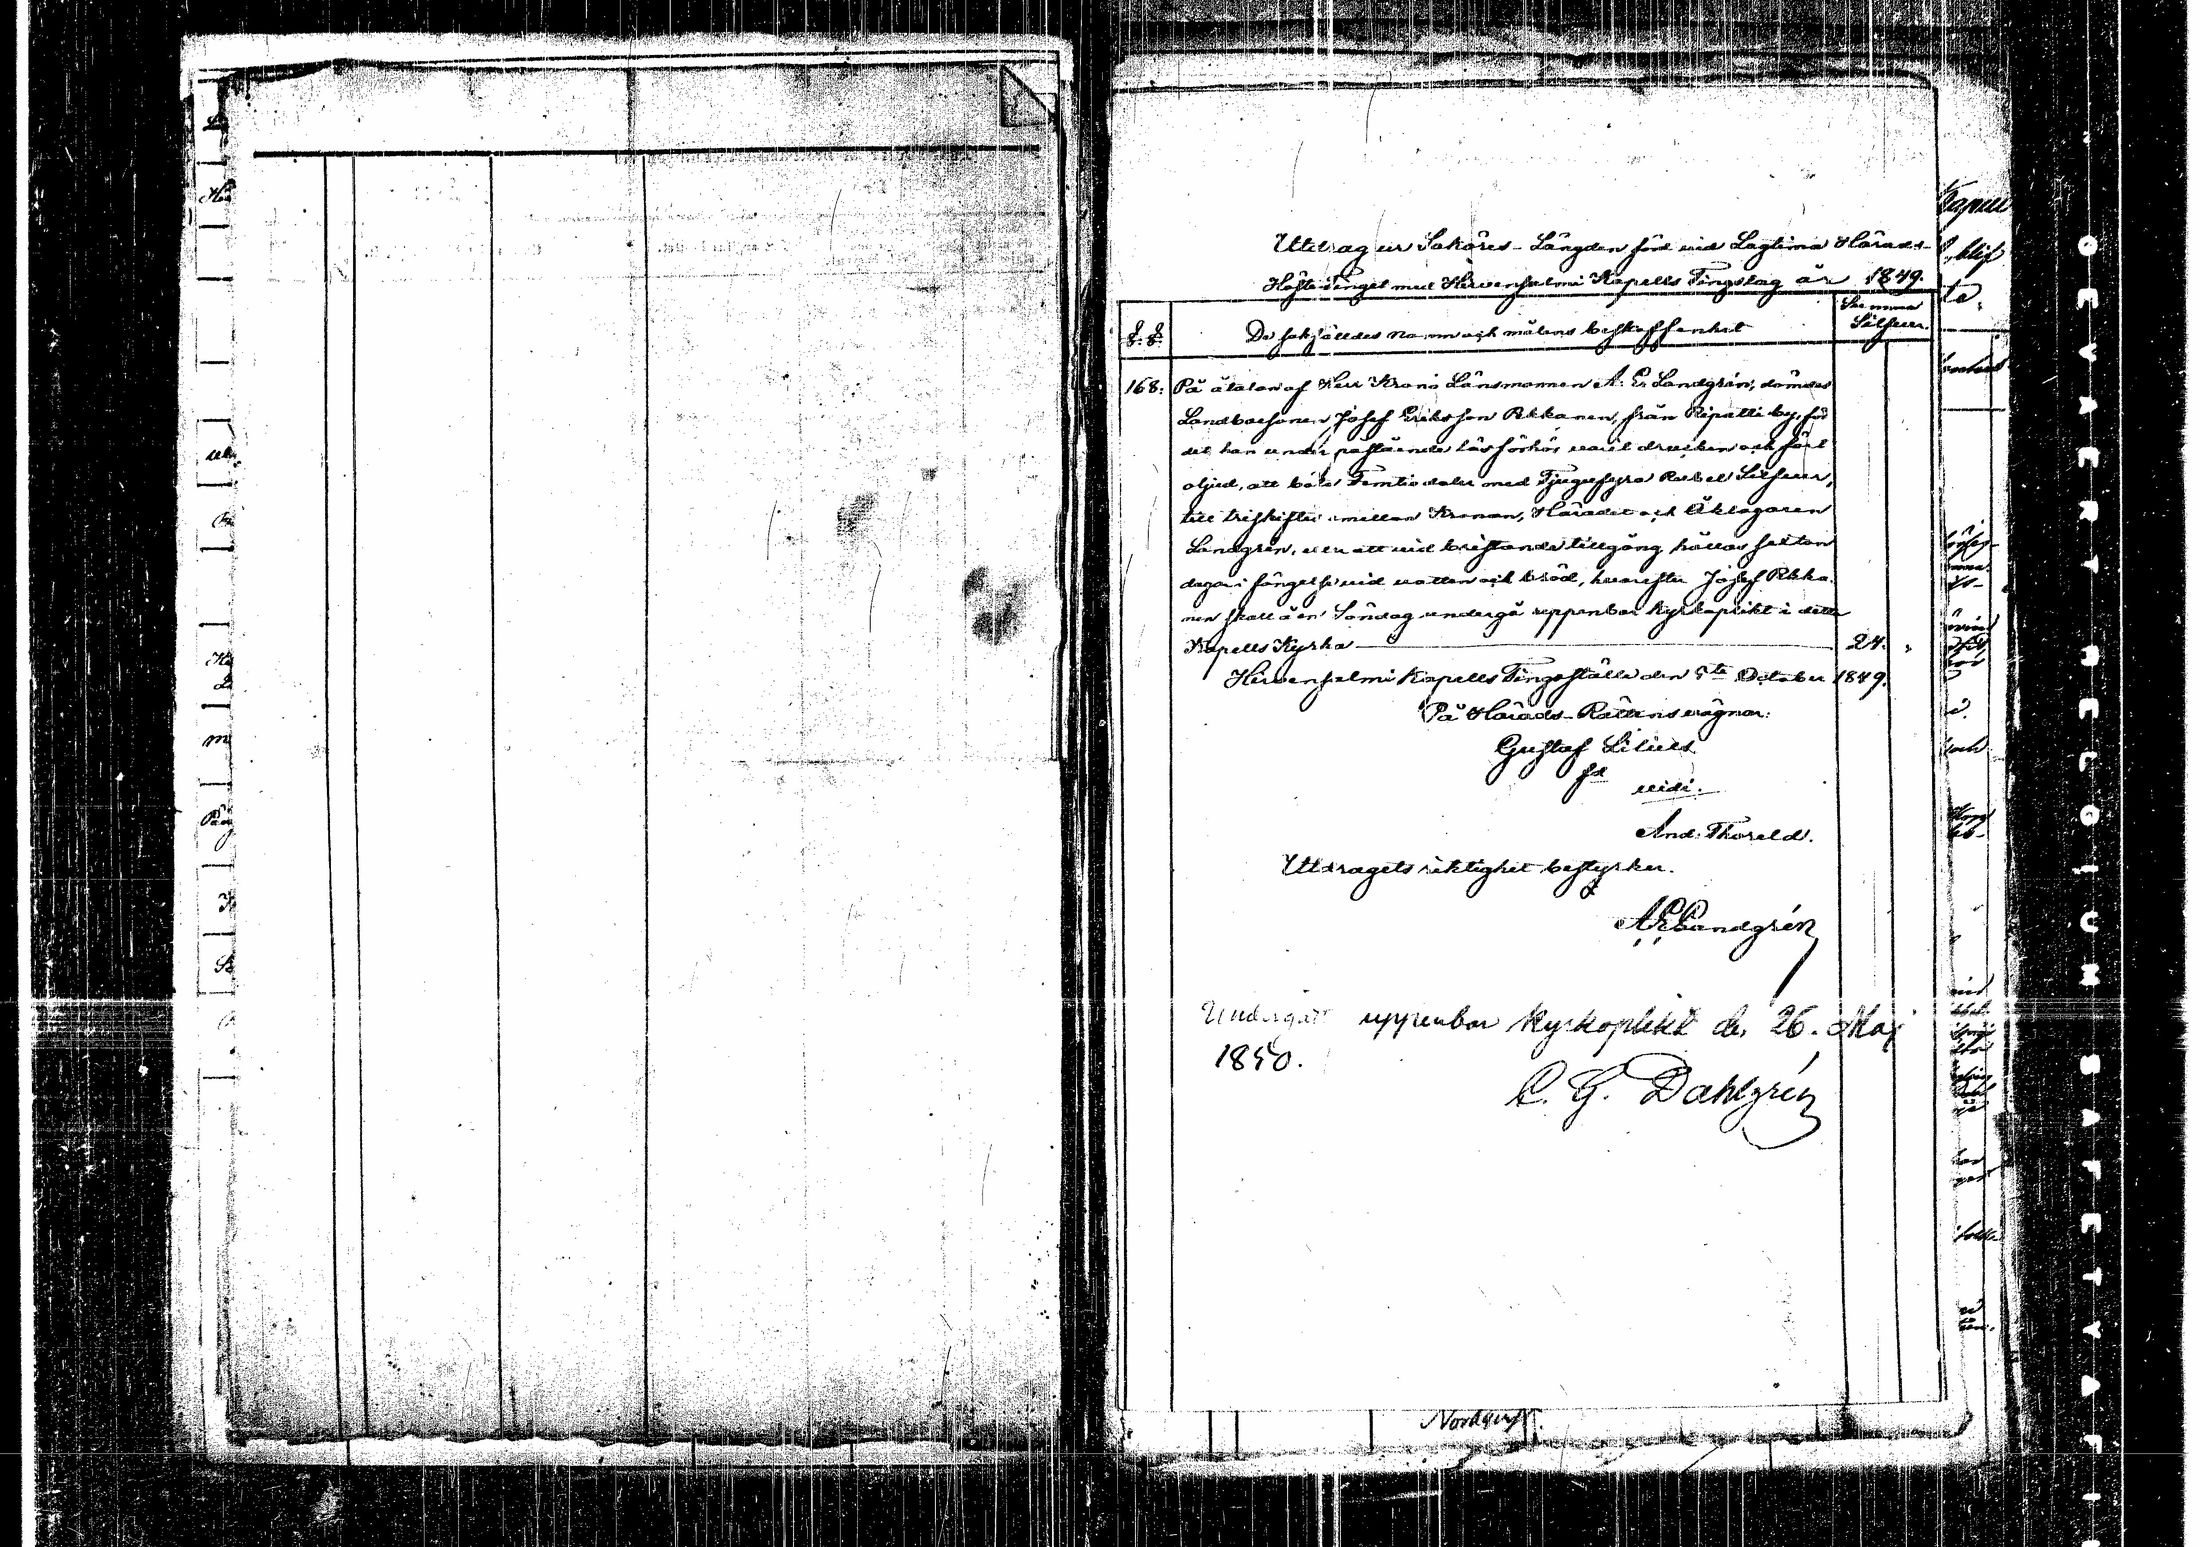 Utdrag ur Saköres-Längden förd vid Lagtima Härads-
Höste Tinget med Hirvensalmi Kapells Tingslag år 1849.
§.§. De sakfälldes namn och målens beskaffenhet Summa Silfver.
168. På åtalan af Herr Krono Länsmannen A. E. Landgrén, dömdes
Landbosonen Josef Eriksson Pekkanen, från Ripatti by, för
det han under påstående läsförhör varit drucken och fört
oljud, att böta Femtio daler med Tjugufyra Rubel Silfver,
till treskiftes emellan Kronan, Häradet och Åklagaren
Landgrén, eller att vid bristande tillgång hållas sexton
dagar i fängelse vid vatten och bröd, hvarefter Josef Pekka-
nen skall å en Söndag undergå uppenbar kyrkoplikt i detta
Kapells Kyrka 24. "
Hirvensalmi Kapells Tingsställe den 5te October 1849.
På Härads-Rättens vägnar:
Gustaf Lilius
vidi.
And: Thoreld.
Utdragets riktighet bestyrker.
A E Landgrén
Undergått uppenbar kyrkoplikt den 26. Maj
1850.
C. G. Dahlgrén
Nordqvist.